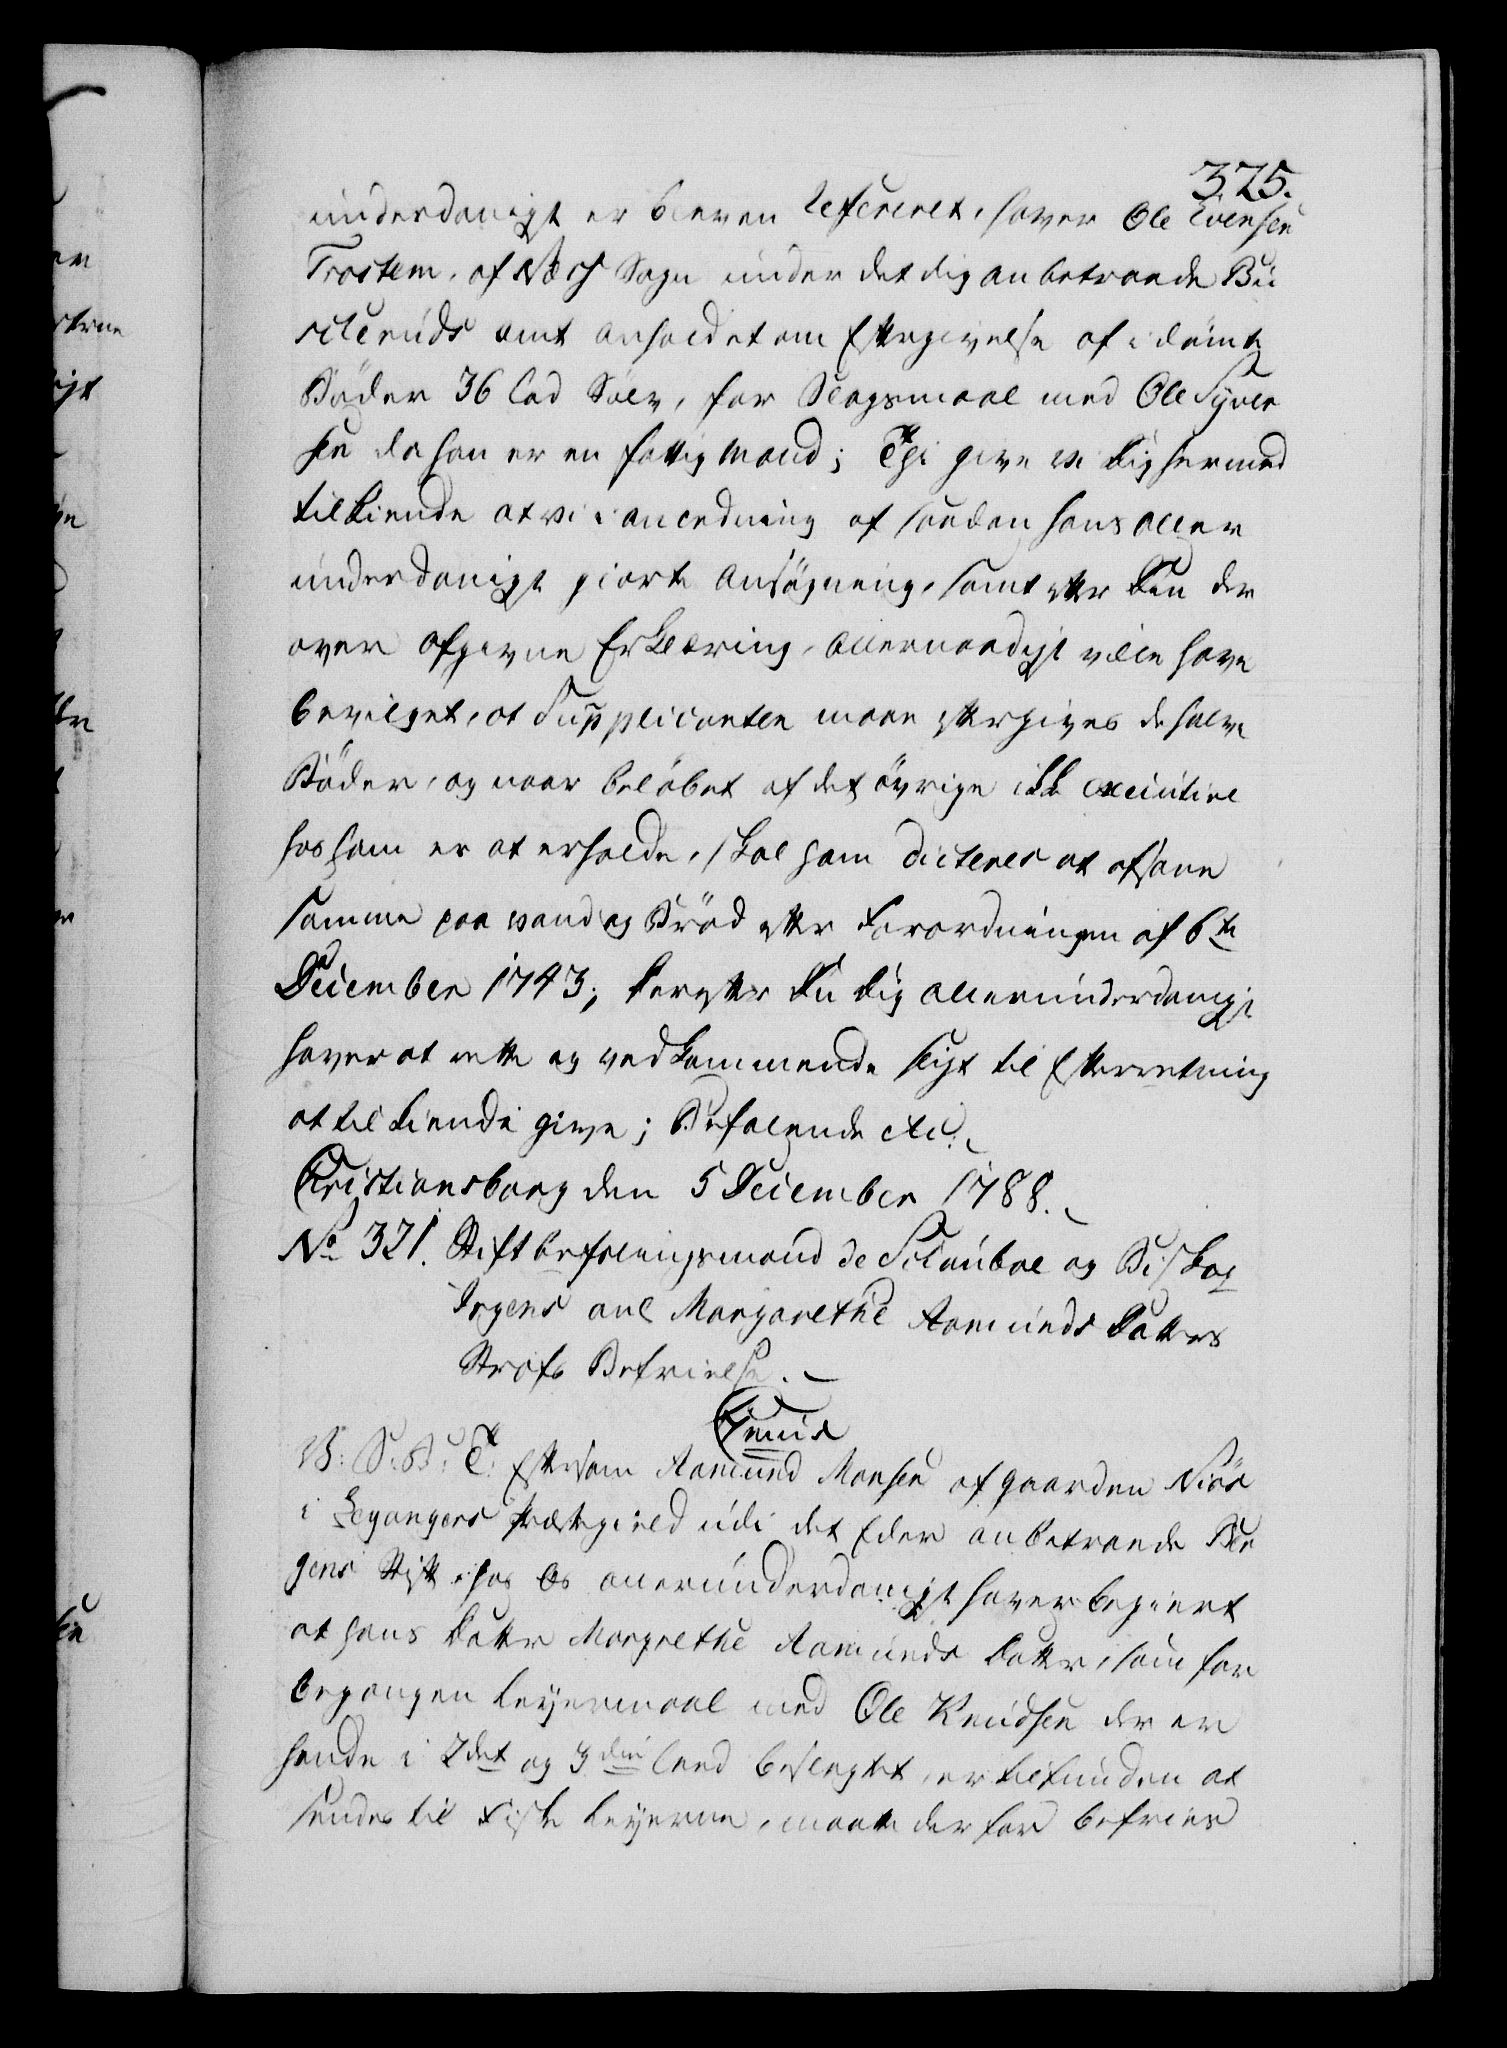 325.
underdanigst er bleven refereret, haver Ole Evensen
Trostem, af Næss Sogn under det dig anbetroede Bu
scheruds amt anholdet om Eftergivelse af idømte
Bøder 36 lod Sølv, for Slagsmaal med Ole Syver
sen da han er en fattig Mand; Thi give vi Dig hermed
tilkiende at vi i anledning af saadan hans aller
underdanigst giorte Ansøgning, samt efter Din der
over afgivne Erklæring, allernaadigst ville have
bevilget, at Supplicanten maae eftergives de halve
Bøder, og naar beløbet af det øvrige ikke executive
hos ham er at erholde, skal ham dicteres at afsone
samme paa vand og Brød efter Forordningen af 6te
December 1743; Derefter Du Dig allerunderdanigst
haver at rette og vedkommende sligt til Efterretning
at tilkiende give; Befalende etc:
Christiansborg den 5 December 1788.
No 321. Stiftbefalingsmand de Schouboe og Biskop
Irgens anl Margarethe Aamunds Datters
Strafs Befrielse.
C: 7mus
V: S: B: T: Eftersom Aamund Monsen af gaarden Niøs
i Legangers Præstegield udi det Eder anbetroede Ber
gens Stift, hos Os allerunderdanigst haver begiert
at hans Datter Margrethe Aamunds Datter, som for
begangen Leyermaal med Ole Knudsen der er
hende i 2det og 3die leed beslegtet, er tilfunden at
sendes til Fiske leyerne, maatte derfor befries